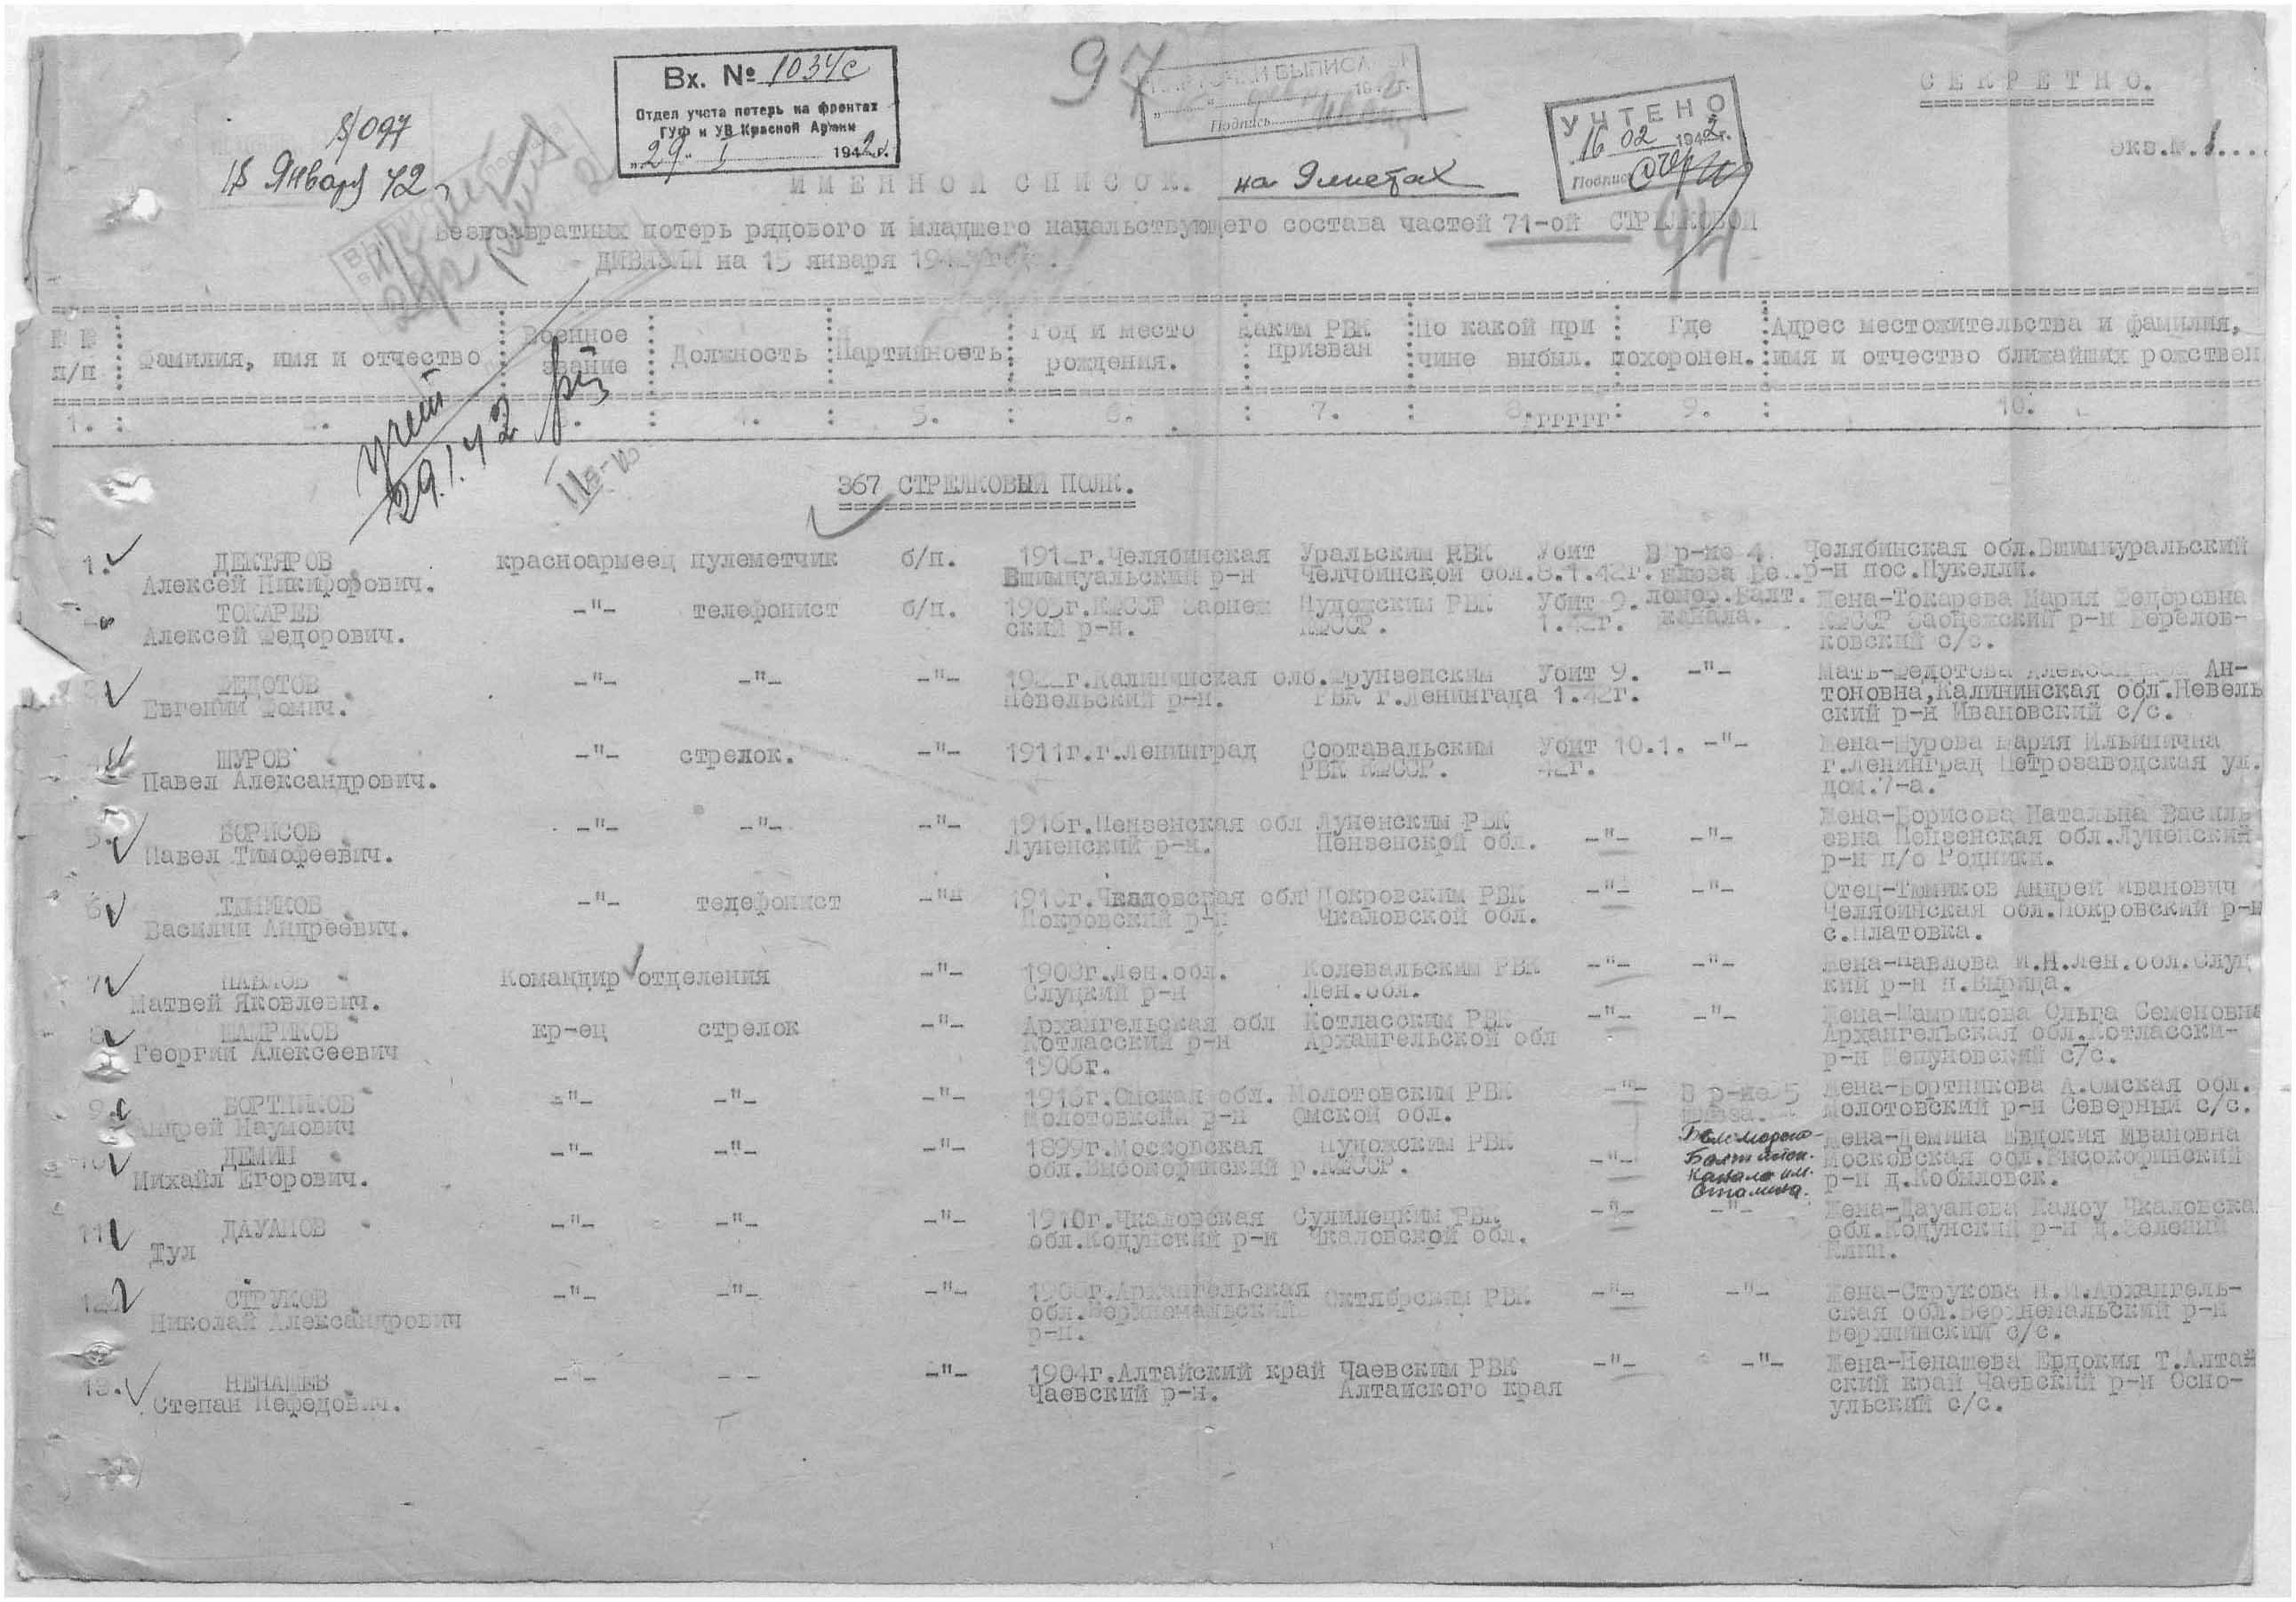 СЕКРЕТНО.
Экз.№.1....
Вх. № 1034с
Отдел учета потерь на фронтах
ГУФ и УВ Красной Армии
"29" I 1942г.
97
Подпись
УЧТЕНО
16 02 1942г.
Подпись
94
S/097
15 Января 42г
ИМЕННОЙ СПИСОК. на 9 листах
Безвозвратных потерь рядового и младшего начальствующего состава частей 71-ой СТРЕЛКОВОЙ
ДИВИЗИИ на 15 января 1942 года.
№ №
п/п
Фамилия, имя и отчество
Военное
звание
Должность
Партийность
Год и место
рождения.
Каким РВК
призван
По какой при
чине выбыл.
Где
похоронен.
Адрес местожительства и фамилия,
имя и отчество ближайших родствен
1. : 2. : 3. : 4. : 5. : 6. : 7. : 8.ггггг: 9. : 10.
29.1.42
367 СТРЕЛКОВЫЙ ПОЛК.
1. ДЕКТЯРОВ красноармеец пулеметчик б/п. 1912г.Челябинская Уральским РВК Убит В р-не 4 Челябинская обл.
Алексей Никифорович. р-н 8.1.42г. р-н пос.
ТОКАРЕВ -"- телефонист б/п. 1905г.КФССР Заонеж Пудожским РВК Убит 9. Жена-Токарева Мария Федоровна
Алексей Федорович. ский р-н. КФССР. 1.42г. канала. КФССР Заонежский р-н
ковский с/с.
ФЕДОТОВ -"- -"- -"- 1922г.Калининская олб.Фрунзенским Убит 9. -"- Мать-Федотова Александра Ан-
Евгений Фомич. Невельский р-н. РВК г.Ленингада 1.42г. тоновна,Калининская обл.Невель
ский р-н Ивановский с/с.
ШУРОВ -"- стрелок. -"- 1911г.г.Ленинград Соотавальским Убит 10.1. -"- Жена-Шурова Мария Ильинична
Павел Александрович. РВК КФССР. 42г. г.Ленинград Петрозаводская ул.
дом.7-а.
5. БОРИСОВ -"- -"- -"- 1916г.Пензенская обл Луненским РВК -"- -"- Жена-Борисова Наталья Василь
Павел Тимофеевич. Луненский р-н. Пензенской обл. евна Пензенская обл.Луненский
р-н п/о Родники.
6 ТЮМИКОВ -"- телефонист -"- Чкаловская обл Покровским РВК -"- -"- Отец-Тюмиков Андрей Иванович
Василий Андреевич. Покровский р-н Чкаловской обл. Челябинская обл.Покровский р-н
с.Платовка.
7 ПАВЛОВ Командир отделения -"- 1908г.Лен.обл. Колевальским РВК -"- -"- Жена-Павлова Лен.обл.Слуц
Матвей Яковлевич. Слуцкий р-н Лен.обл. кий р-н п.Вырица.
8 ШАМРИКОВ кр-ец стрелок -"- Архангельская обл Котласским РВК -"- -"- Жена-Шамрикова Ольга Семеновна
Георгий Алексеевич Котласский р-н Архангельской обл Архангельская обл.Котласски-
1906г. р-н с/с.
9. БОРТНИКОВ -"- -"- -"- 1916г.Омская обл. Молотовским РВК -"- В р-не 5 Жена-Бортникова А.Омская обл.
Андрей Наумович р-н Омской обл. шлюза. Молотовский р-н Северный с/с.
10 ДЕМИН -"- -"- -"- 1899г.Московская Пудожским РВК -"- Беломорско- Жена-Демина Евдокия Ивановна
Михаил Егорович. обл.Высокофинский р.КФССР. Балтийск. Московская обл.Высокофинский
Канала им. р-н д.Кобыловск.
Сталина.
11 ДАУАНОВ -"- -"- -"- 1910г.Чкаловская Сулилецким РВК -"- -"- Жена-Дауанова Чкаловска
Тул обл. р-н Чкаловской обл. обл. р-н д.Зеленый
Клин.
12 СТРУКОВ -"- -"- -"- Архангельская Октябрским РВК -"- -"- Жена-Струкова Архангель-
Николай Александрович обл. ская обл. р-н
р-н. с/с.
13. НЕНАШЕВ -"- - - -"- 1904г.Алтайский край Чаевским РВК -"- -"- Жена-Ненашева Евдокия Т.Алтай
Степан Нефедович. Чаевский р-н. Алтайского края ский край Чаевский р-н Осно-
ульский с/с.